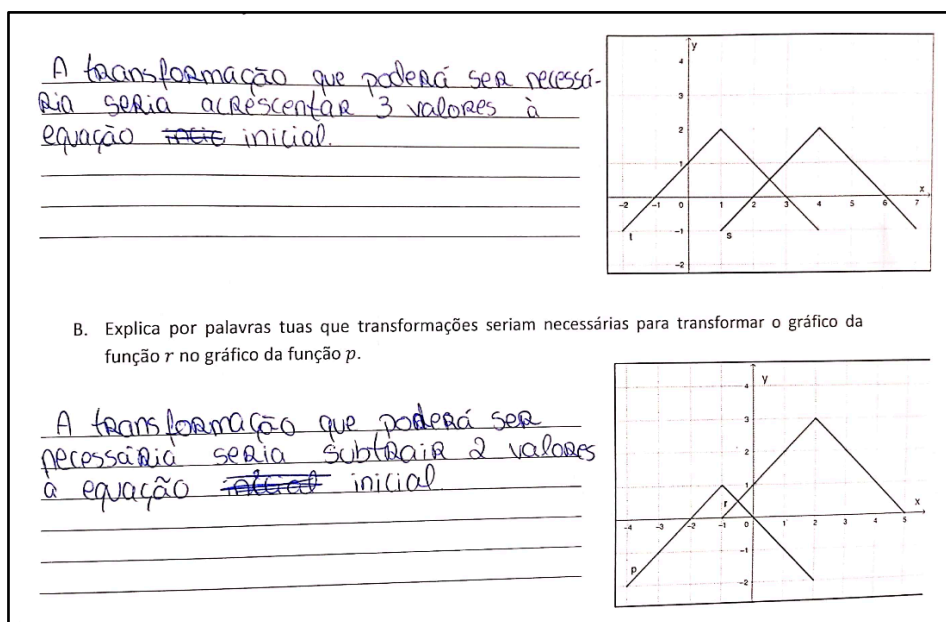 A transformação que poderá ser necessá-
ria seria acrescentar 3 valores à
equação inicial.
y
4
3
2
1
x
-2 -1 0 1 2 3 4 5 6 7
t
s
-1
-2
B. Explica por palavras tuas que transformações seriam necessárias para transformar o gráfico da
função r no gráfico da função p.
A transformação que poderá ser
necessáiria seria subtrair 2 valores
à equação inicial
y
4
3
2
1
r
x
-4 -3 -2 -1 0 1 2 3 4 5
-1
p
-2